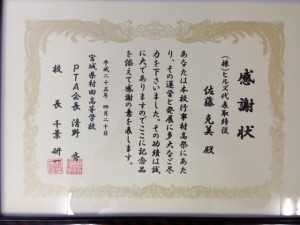 感謝状
(株)ヒルズ代表取締役
佐藤克美殿
あなたは本校行事村高祭にあた
り、その運営と発展に多大なご尽
力を下さいました。その功績は誠
に大でありますのでここに記念品
を添えて感謝の意を表します。
平成二十五年四月二十日
宮城県村田高等学校
PTA会長清野
校長千葉研一